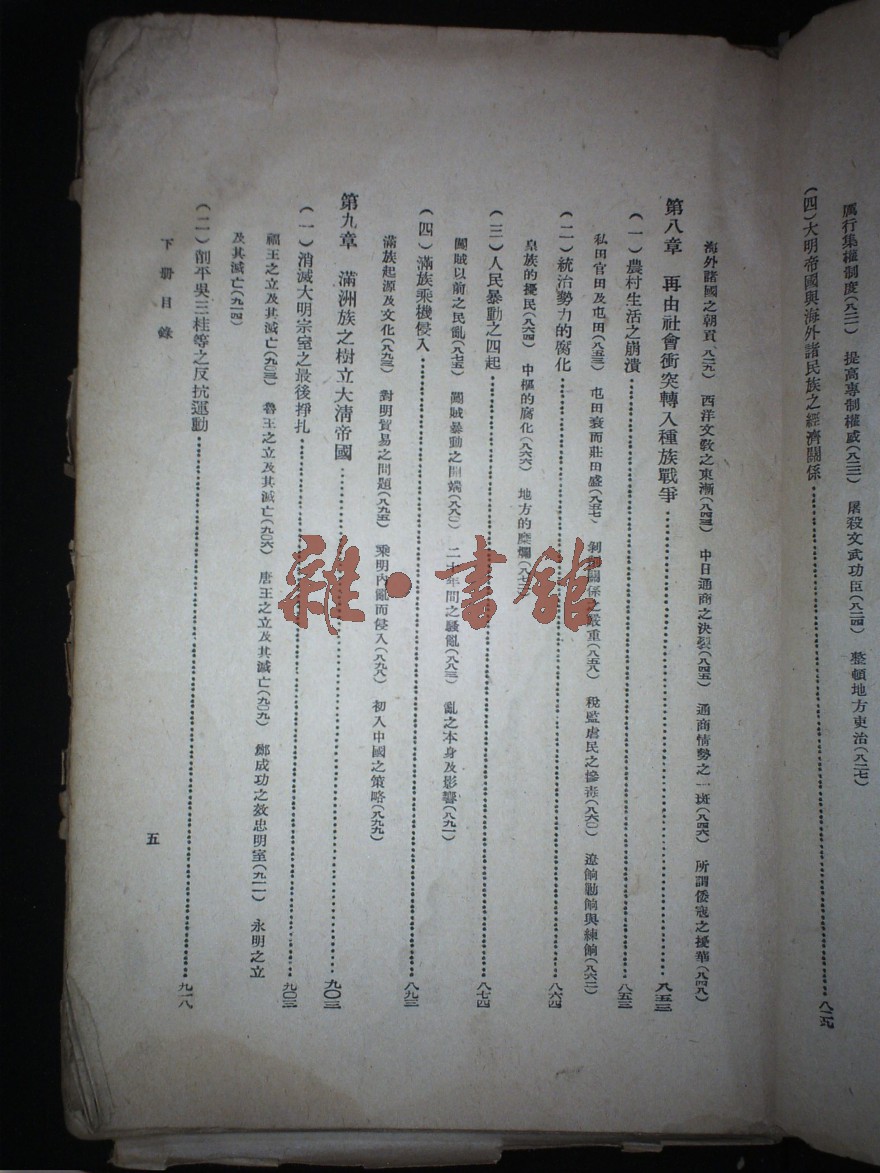 厲行集權制度(八二一) 提高專制權威(八二三) 屠殺文武功臣(八二四) 整頓地方吏治(八二七)
(四)大明帝國與海外諸民族之經濟關係……八二九
海外諸國之朝貢(八二九) 西洋文教之東漸(八四三) 中日通商之決裂(八四五) 通商情勢之一斑(八四六) 所謂倭寇之擾華(八四八)
第八章 再由社會衝突轉入種族戰爭……八五三
(一)農村生活之崩潰……八五三
私田官田及屯田(八五三) 屯田衰而莊田盛(八五七) 剝削關係之嚴重(八五八) 稅監虐民之慘毒(八六〇) 遼餉勦餉與練餉(八六二)
(二)統治勢力的腐化……八六四
皇族的擾民(八六四) 中樞的腐化(八六六) 地方的糜爛
(三)人民暴動之四起……八七四
闖賊以前之民亂(八七五) 闖賊暴動之開端(八八〇) 二十年間之騷亂(八八三) 亂之本身及影響(八九一)
(四)滿族乘機侵入……八九三
滿族起源及文化(八九三) 對明貿易之問題(八九五) 乘明內亂而侵入(八九八) 初入中國之策略(八九九)
第九章 滿洲族之樹立大清帝國……九〇三
(一)消滅大明宗室之最後掙扎……九〇三
福王之立及其滅亡(九〇三) 魯王之立及其滅亡(九〇六) 唐王之立及其滅亡(九〇九) 鄭成功之效忠明室(九一一) 永明之立
及其滅亡(九一四)
(二)削平吳三桂等之反抗運動……九一八
下册目錄
五
雜·書館